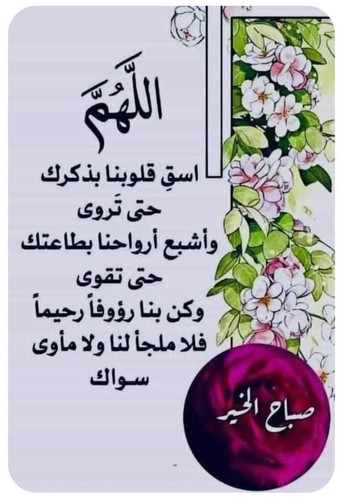 اللَّهُمَّ
اسقِ قلوبنا بذكرك
حتى تَروى
وأشبع أرواحنا بطاعتك
حتى تقوى
وكن بنا رؤوفاً رحيماً
فلا ملجأ لنا ولا مأوى
سواك
صباح الخير